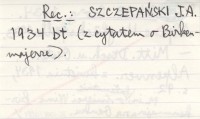 Rec.: SZCZEPAŃSKI J.A.
1934 bt (z cytatem o Birken-
majerze).